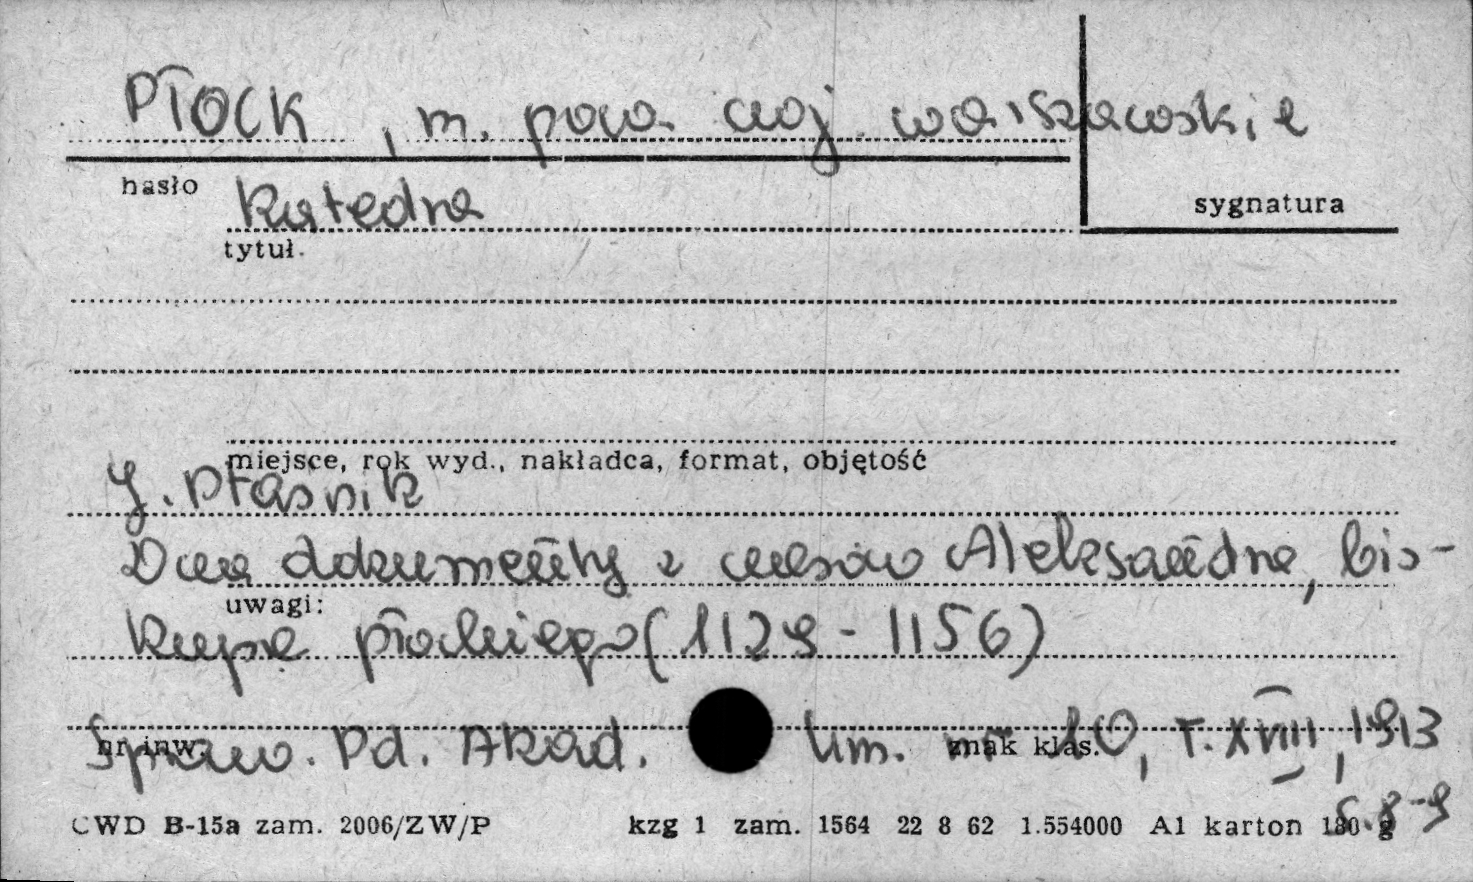 PŁOCK, m. pow. woj. warszawskie
hasło
Katedra
sygnatura
tytuł.
miejsce, rok wyd., nakładca, format, objętość
J. Ptaśnik
Dwa dokumenty z czasów Aleksandra, bis-
uwagi:
kupa płockiego (1129 - 1156)
nr inw.
znak klas.
Spraw. Pd. Akad. Um. nr 10, T. XVIII, 1913
s. 8-9
CWD B-15a zam. 2006/ZW/P kzg 1 zam. 1564 22 8 62 1.554000 A1 karton 180 g